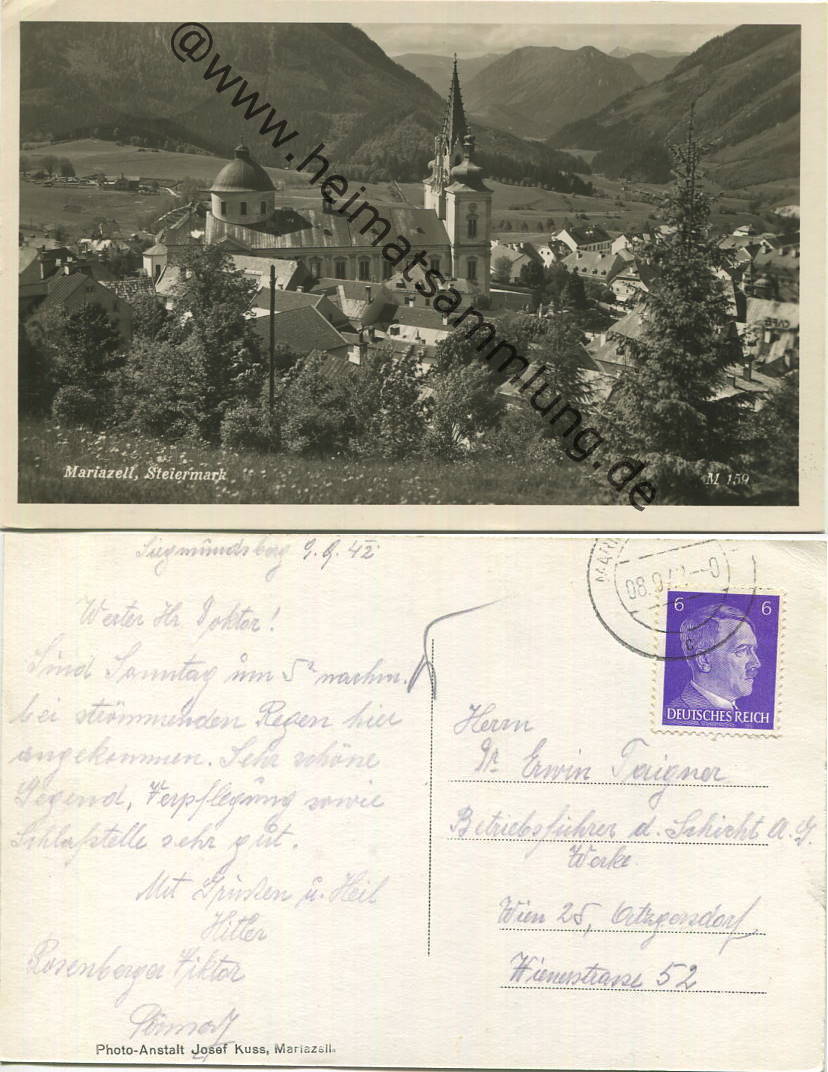 @www.heimatsammlung.de
Mariazell, Steiermark
M 159
Siegmundsberg 9.9.42
Werter Hr. Doktor!
Sind Sonntag um 5h nachm.
bei strömmenden Regen hier
angekommen. Sehr schöne
Gegend, Verpflegung sowie
Schlafstelle sehr gut.
Mit Grüßen u. Heil
Hitler
Rosenberger Viktor
Photo-Anstalt Josef Kuss, Mariazell.
08.9.42
6 6
DEUTSCHES REICH
Herrn
Dr Erwin Taigner
Betriebsführer d. Schicht A. G.
Werke
Wien 25, Atzgersdorf,
Wienerstrasse 52